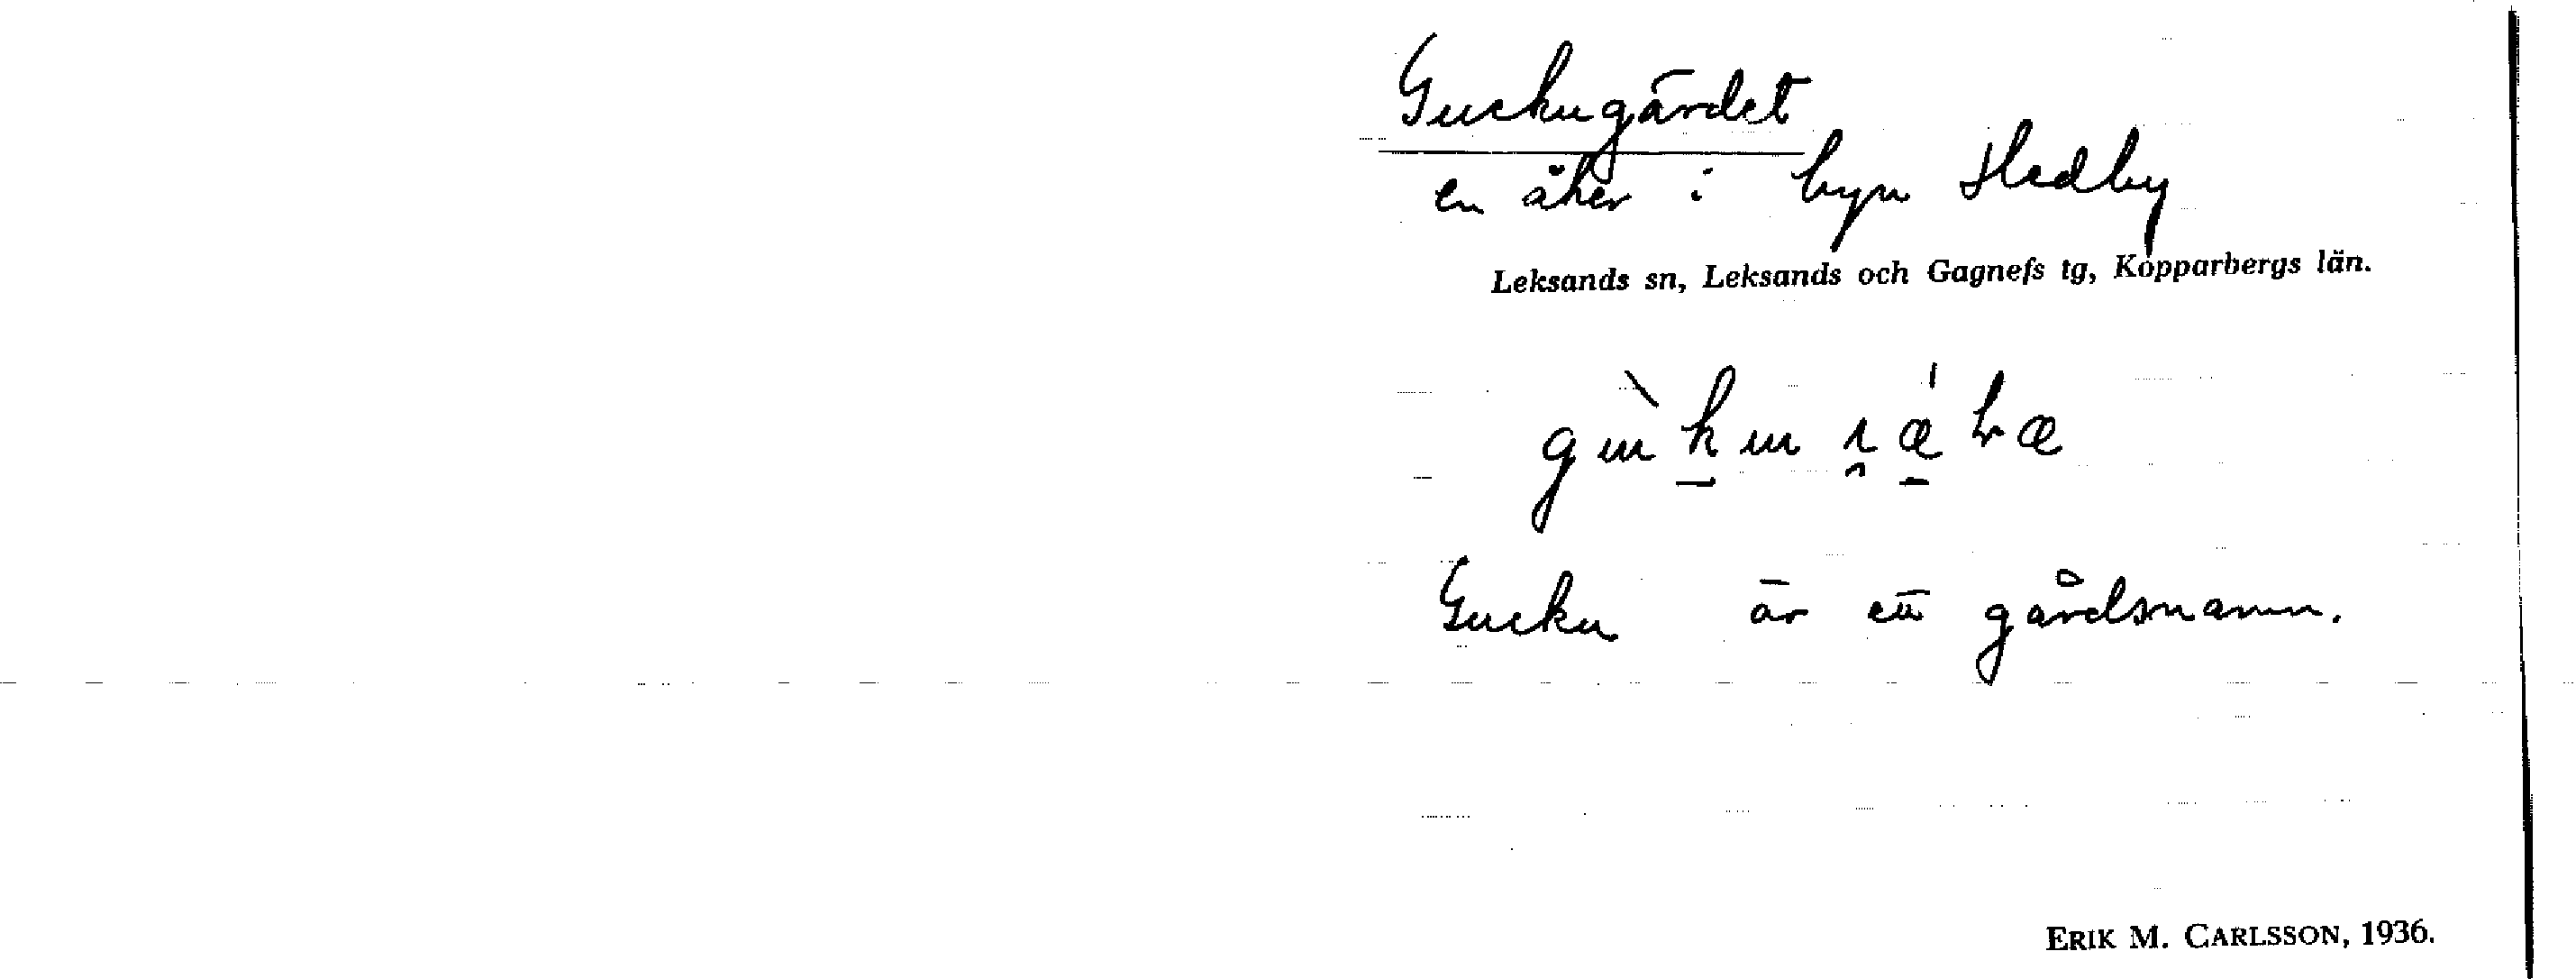 Guckugärdet
en åker i byn Hedby
Leksands sn, Leksands och Gagnefs tg, Kopparbergs län.
Gucku är ett gårdsnamn.
ERIK M. CARLSSON, 1936.